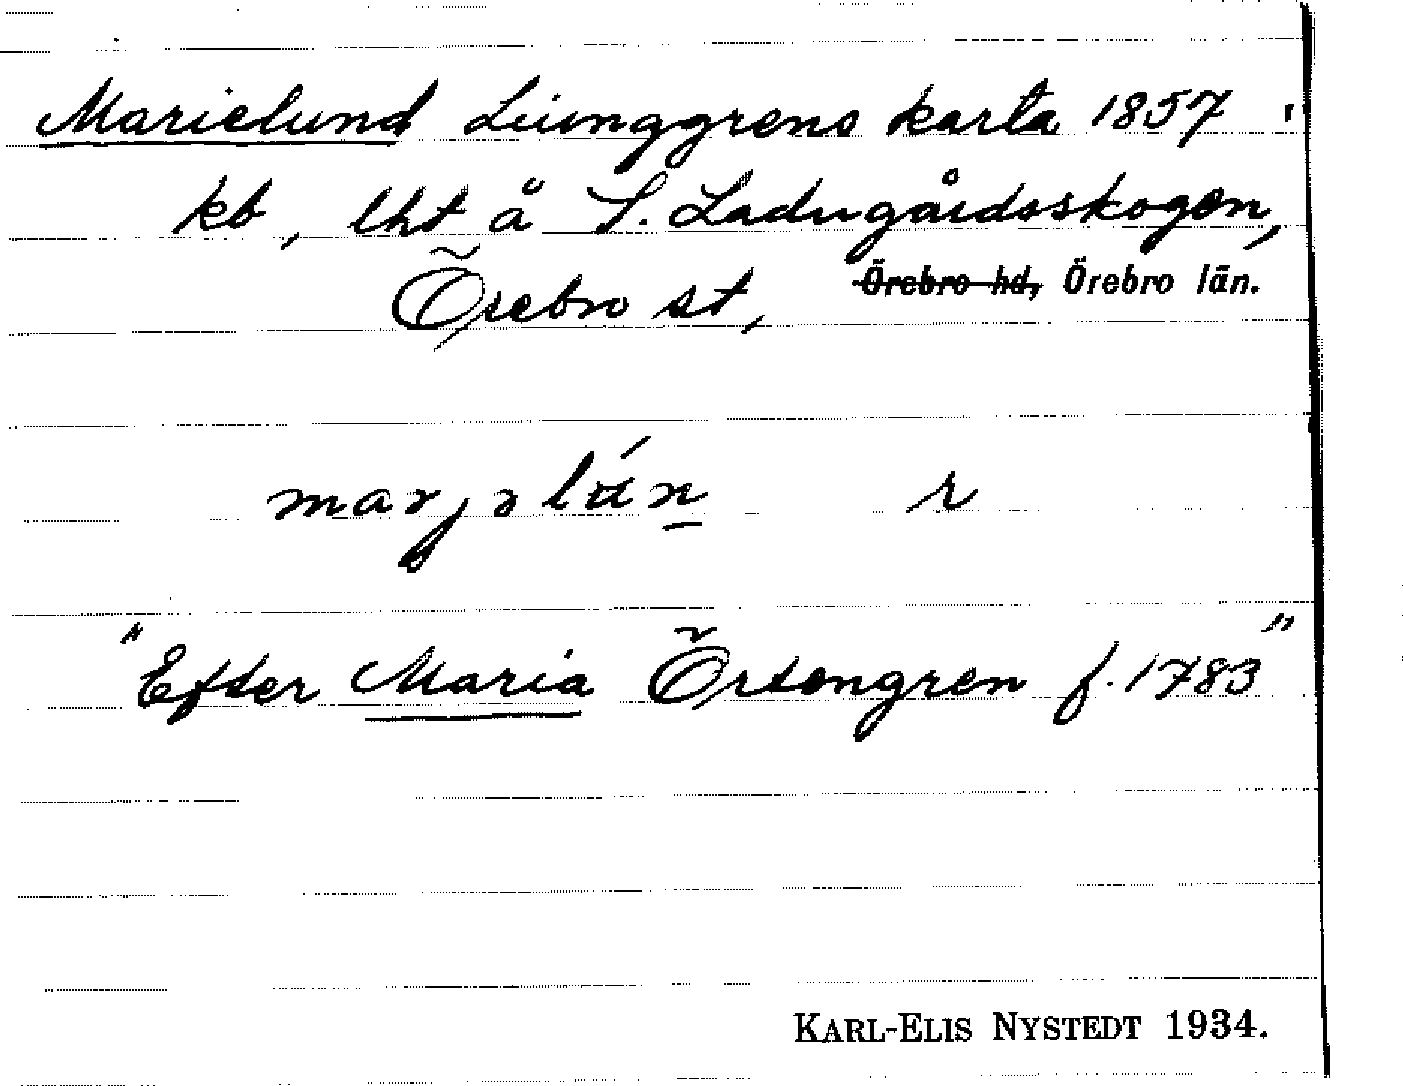 Marielund Liunggrens karta 1857
kb, lht å S. Ladugårdsskogen,
Örebro st, ~~Örebro hd,~~ Örebro län.
r
"Efter Maria Örtengren f. 1783"
KARL-ELIS NYSTEDT 1934.